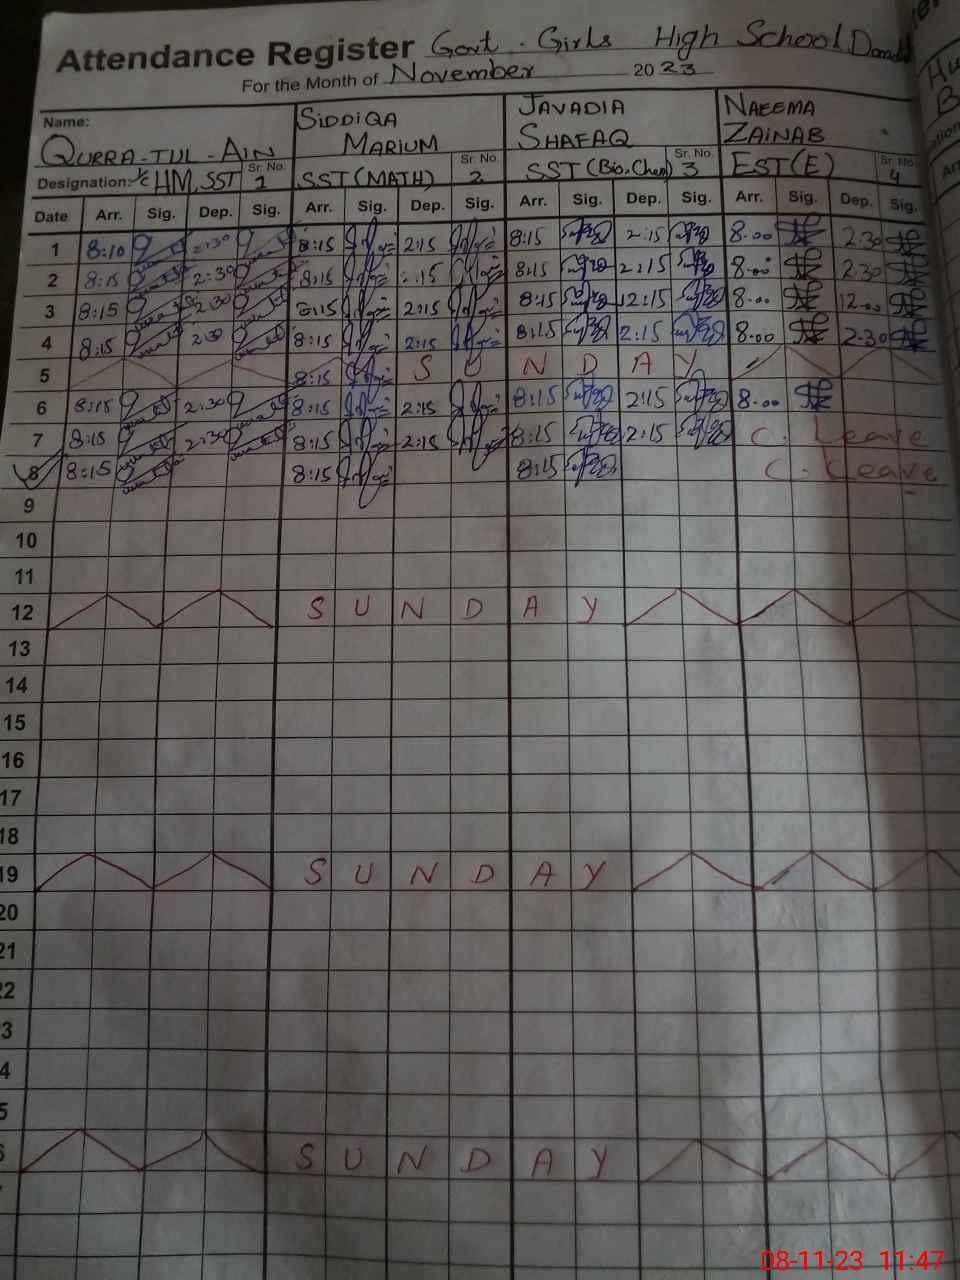 Attendance Register Govt. Girls High School
For the Month of November 2023
Name: QURRA-TUL-AIN SIDDIQA MARIUM JAVADIA SHAFAQ NAEEMA ZAINAB
Designation: I/C HM, SST Sr. No. 1 SST (MATH) Sr. No. 2 SST (Bio, Chem) Sr. No. 3 EST(E) Sr. No. 4
Date Arr. Sig. Dep. Sig. Arr. Sig. Dep. Sig. Arr. Sig. Dep. Sig. Arr. Sig. Dep. Sig.
1 8:10 2:30 8:15 2:15 8:15 2:15 8.00 2.30
2 8:15 2:30 8:15 :15 8:15 2:15 8.00 2.30
3 8:15 2:30 8:15 2:15 8:15 12:15 8.00 12.00
4 8:15 2:30 8:15 2:15 8:15 2:15 8.00 2.30
5 8:15 S U N D A Y
6 8:15 2:30 8:15 2:15 8:15 2:15 8.00
7 8:15 2:30 8:15 2:15 8:15 2:15 C. Leave
8 8:15 8:15 8:15 C. Leave
9
10
11
12 S U N D A Y
13
14
15
16
17
18
19 S U N D A Y
20
21
22
3
4
5
6 S U N D A Y
08-11-23 11:47